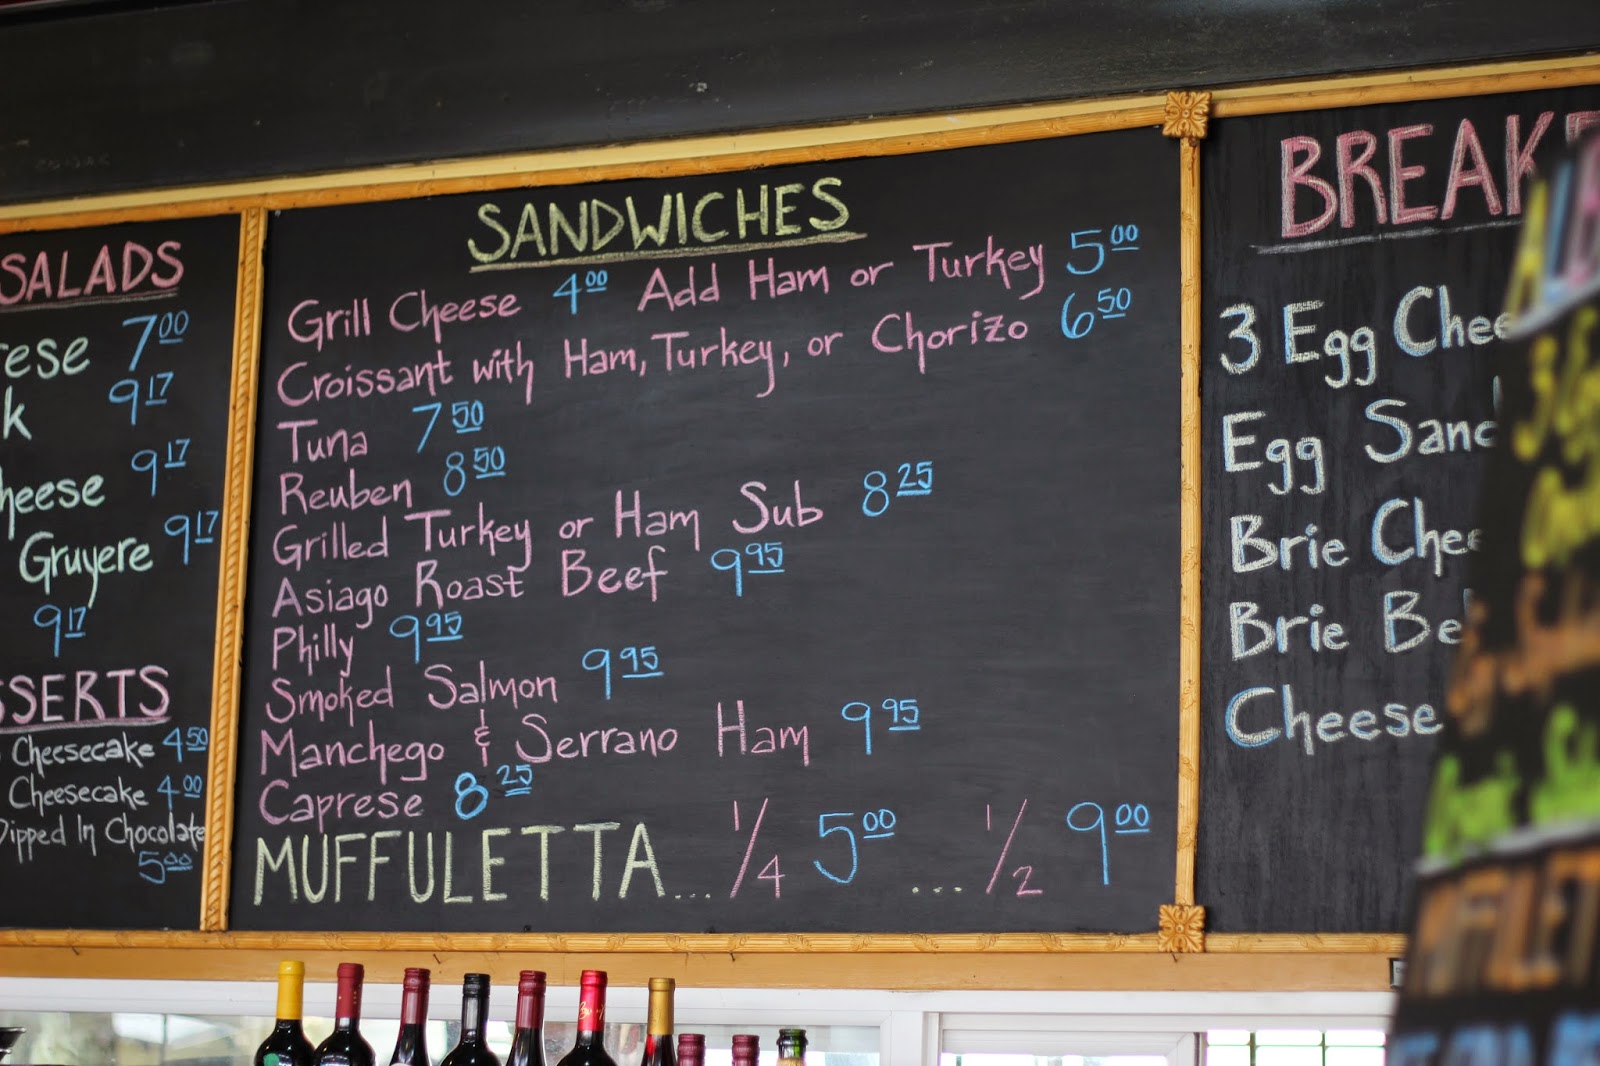 SALADS
7.00
9.17
9.17
Gruyere 9.17
9.17
Cheesecake 4.50
Cheesecake 4.00
Dipped In Chocolate
5.00
SANDWICHES
Grill Cheese 4.00 Add Ham or Turkey 5.00
Croissant with Ham, Turkey, or Chorizo 6.50
Tuna 7.50
Reuben 8.50
Grilled Turkey or Ham Sub 8.25
Asiago Roast Beef 9.95
Philly 9.95
Smoked Salmon 9.95
Manchego & Serrano Ham 9.95
Caprese 8.25
MUFFULETTA... 1/4 5.00 .... 1/2 9.00
3 Egg
Egg
Brie
Brie
Cheese